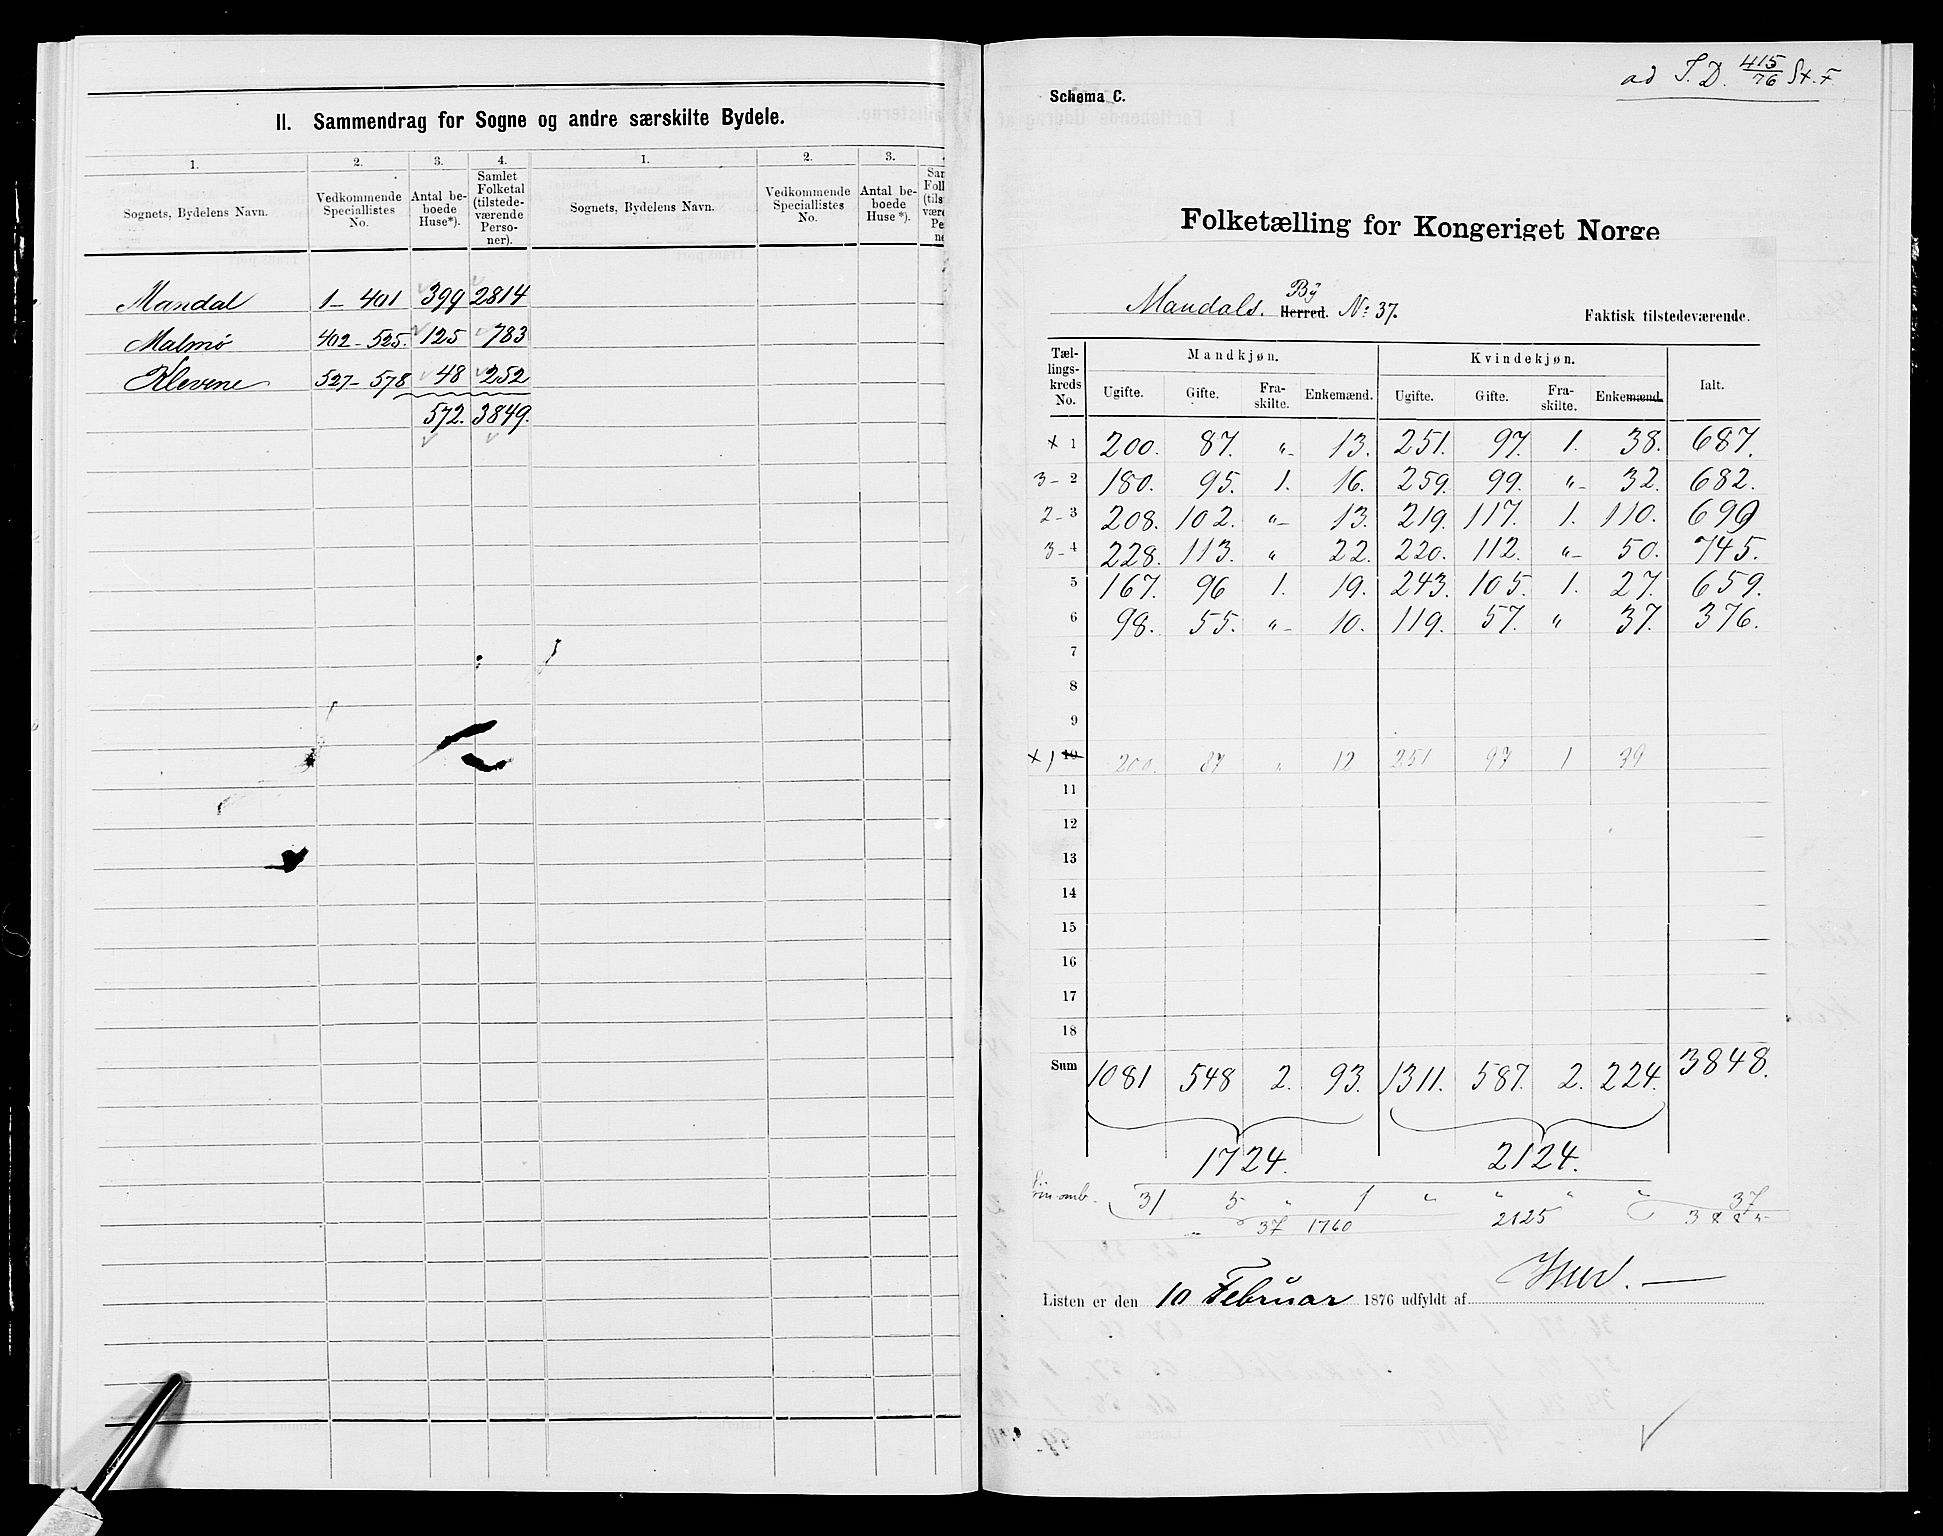 II. Sammendrag for Sogne og andre særskilte Bydele.
1. 2. 3. 4. 1. 2. 3.
Sognets, Bydelens Navn. Vedkommende Speciallistes No. Antal beboede Huse*). Samlet Folketal (tilstedeværende Personer). Sognets, Bydelens Navn. Vedkommende Speciallistes No. Antal beboede Huse*).
Mandal 1 - 401 399 2814
Malmø 402 - 525. 125 783
Klevene 527 - 578 48 252
572. 3849.
ad I. D. 415/76 St. F
Schema C.
Folketælling for Kongeriget Norge
By
Mandals. Herred. No: 37. Faktisk tilstedeværende.
Tællingskreds No. Mandkjøn. Kvindekjøn. Ialt.
Ugifte. Gifte. Fraskilte. Enkemænd. Ugifte. Gifte. Fraskilte. Enkemænd.
x 1 200. 87. „- 13. 251. 97. 1. 38. 687.
3 - 2 180. 95. 1. 16. 259. 99. „- 32. 682.
2 - 3 208. 102. „- 13. 219. 117. 1. 110. 699
3 - 4 228. 113. „ 22. 220. 112. „- 50. 745.
5 167. 96 1. 19. 243. 105. 1. 27. 659.
6 98. 55. „- 10. 119. 57. „ 37. 376.
7
8
9
x 1 10 200. 87 „ 12 251 97 1 39
11
12
13
14
15
16
17
18
Sum 1081 548 2. 93. 1311. 587. 2. 224. 3848.
1724. 2124.
31 5 „ 1 „ „ „ „ 37
37 1760 2125 3885
Listen er den 10 Februar 1876 udfyldt af